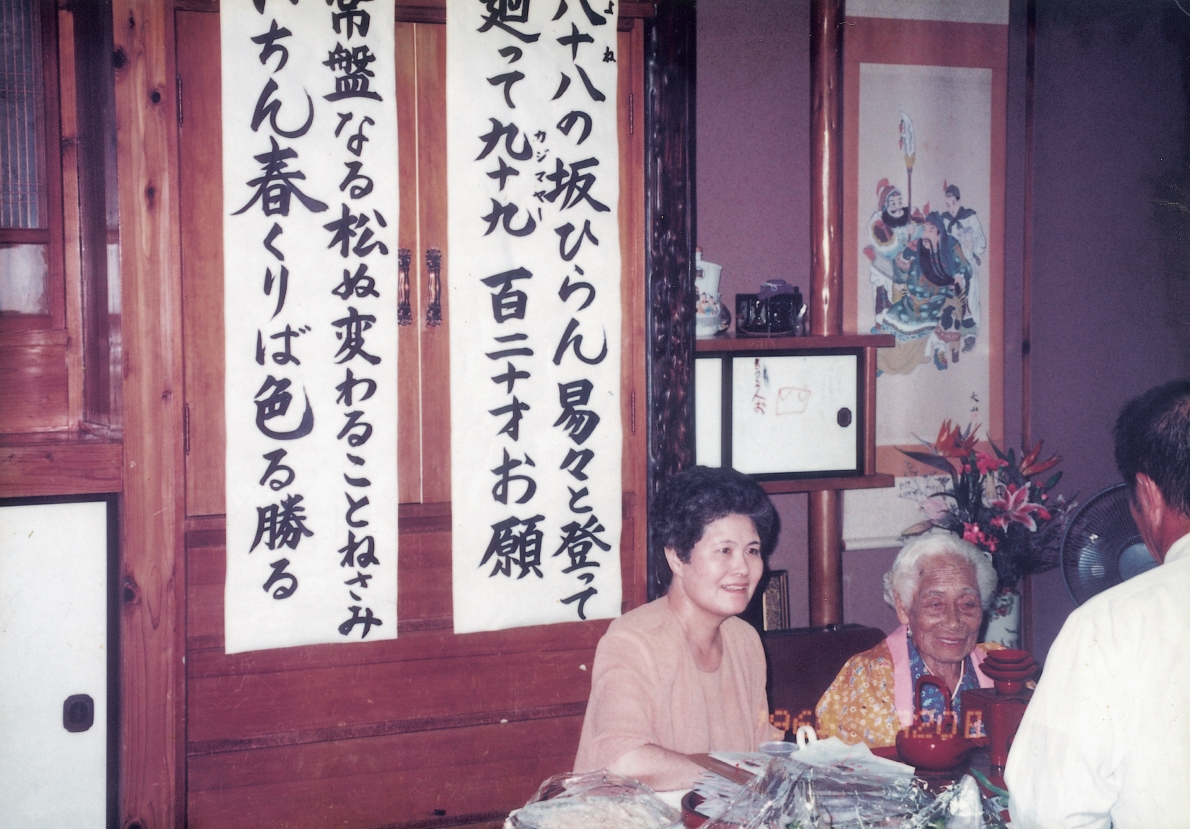 八十八の坂ひらん易々と登って
よね
廻って九十九 百二十才お願
カジマヤー
常盤なる松ぬ変わることねさみ
いちん春くりば色る勝る